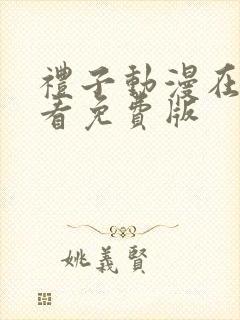 禮子動漫在
看免費版
姚義賢